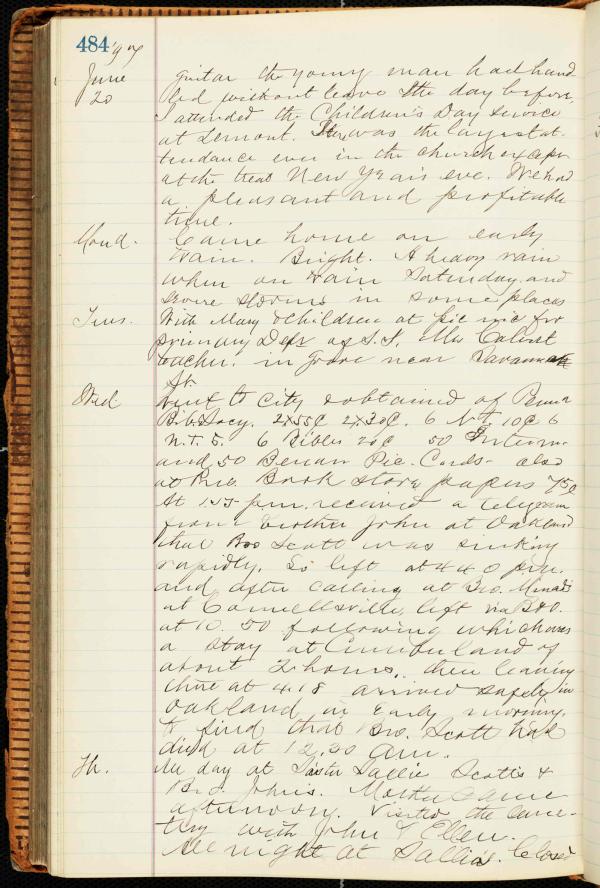 484 '97
June guitar the young man had hand
20 led without leave the day before,
attended the Children's Day service
at Lemont. It was the largest at-
tendance ever in the church except
at the treat New Year's eve. We had
a pleasant and profitable
time.
Mond. Came home on early
train. Bright. A heavy rain
when on train Saturday and
severe storms in some places
Tues. With Mary & children at pic nic for
primary Dept of S.S. Mrs
teacher. in grove near Savannah
St.
Wed. Went to City & obtained of Penna
Bib. Socy. 2x55c 2x30c. 6 N.T. 10c 6
N.T. 5. 6 Bibles 20c 50 Intern-
and 50 Berean Pic. Cards- also
at Pres. Book store papers 75c
At 1.55 p.m. received a telegram
from brother John at Oakland
that Bro Scott was sinking
rapidly. So left at 4 40 p.m.
and after calling at Bro.
at Connellsville, left via B&O.
at 10.50 following which was
a stay at Cumberland of
about 2 hours, then leaving
there at 4.18 arrived safely in
Oakland in early morning.
to find that Bro. Scott had
died at 12.30 am.
Th. All day at Sister Sallie Scott's &
Bro. John's. Martha came
afternoon. Visited the ceme-
tery with John & Ellen.
All night at Sallie's. Closed